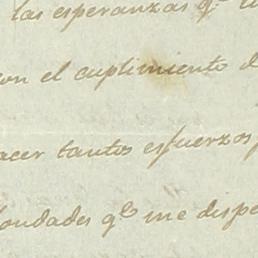 las esperanzas q.e
con el cuplimiento d
acer tantos esfuerzos
ondades q.e me dispe